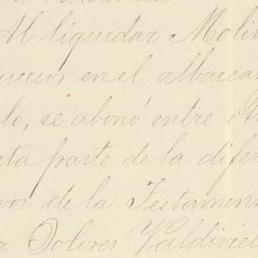 Al liquidar Molin
en el albacea
lo, se abonó entre ot
ta parte de la difer
vor de la Testamen
a Dolores Valdivie